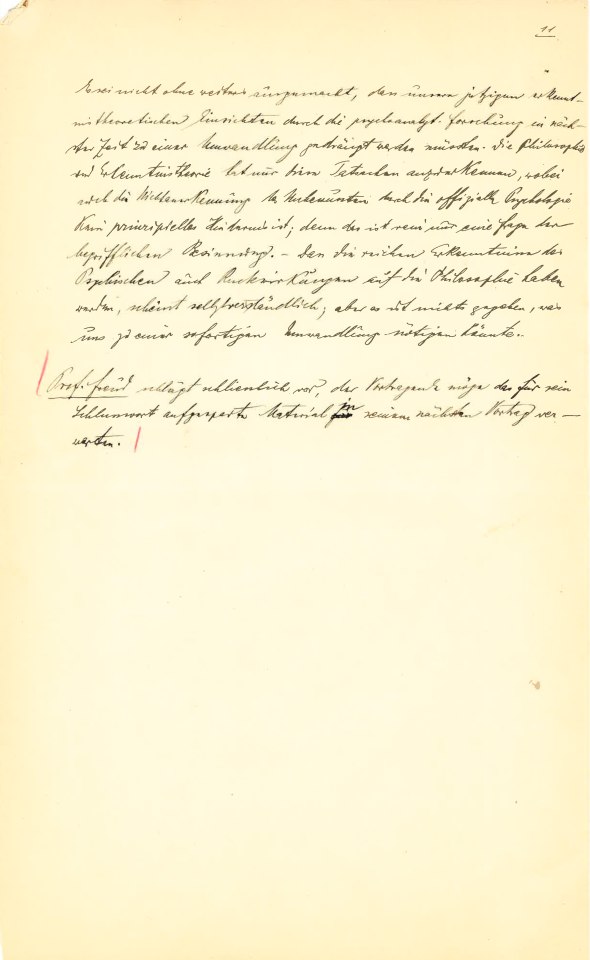 11
Es sei nicht ohne weiteres ausgemacht, dass unsere jetzigen erkennt-
nistheoretischen Einsichten durch die psychoanalyt. Forschung in näch-
ster Zeit zu einer Umwandlung gedrängt werden müssten. Die Philosophie
und Erkenntnistheorie hat nur diese Tatsachen anzuerkennen, wobei
auch die Nichtanerkennung des Unbewussten durch die offizielle Psychologie
kein prinzipielles Hindernis ist; denn das ist rein nur eine Frage der
begrifflichen Besinnung. – Dass die reichen Erkenntnisse des
Psychischen auch Rückwirkungen auf die Philosophie haben
werden, scheint selbstverständlich; aber es ist nichts gegeben, was
uns zu einer sofortigen Umwandlung nötigen könnte.
Prof. Freud schlägt schliesslich vor, der Vortragende möge das für sein
Schlusswort aufgesparte Material in seinem nächsten Vortrag ver-
werten.